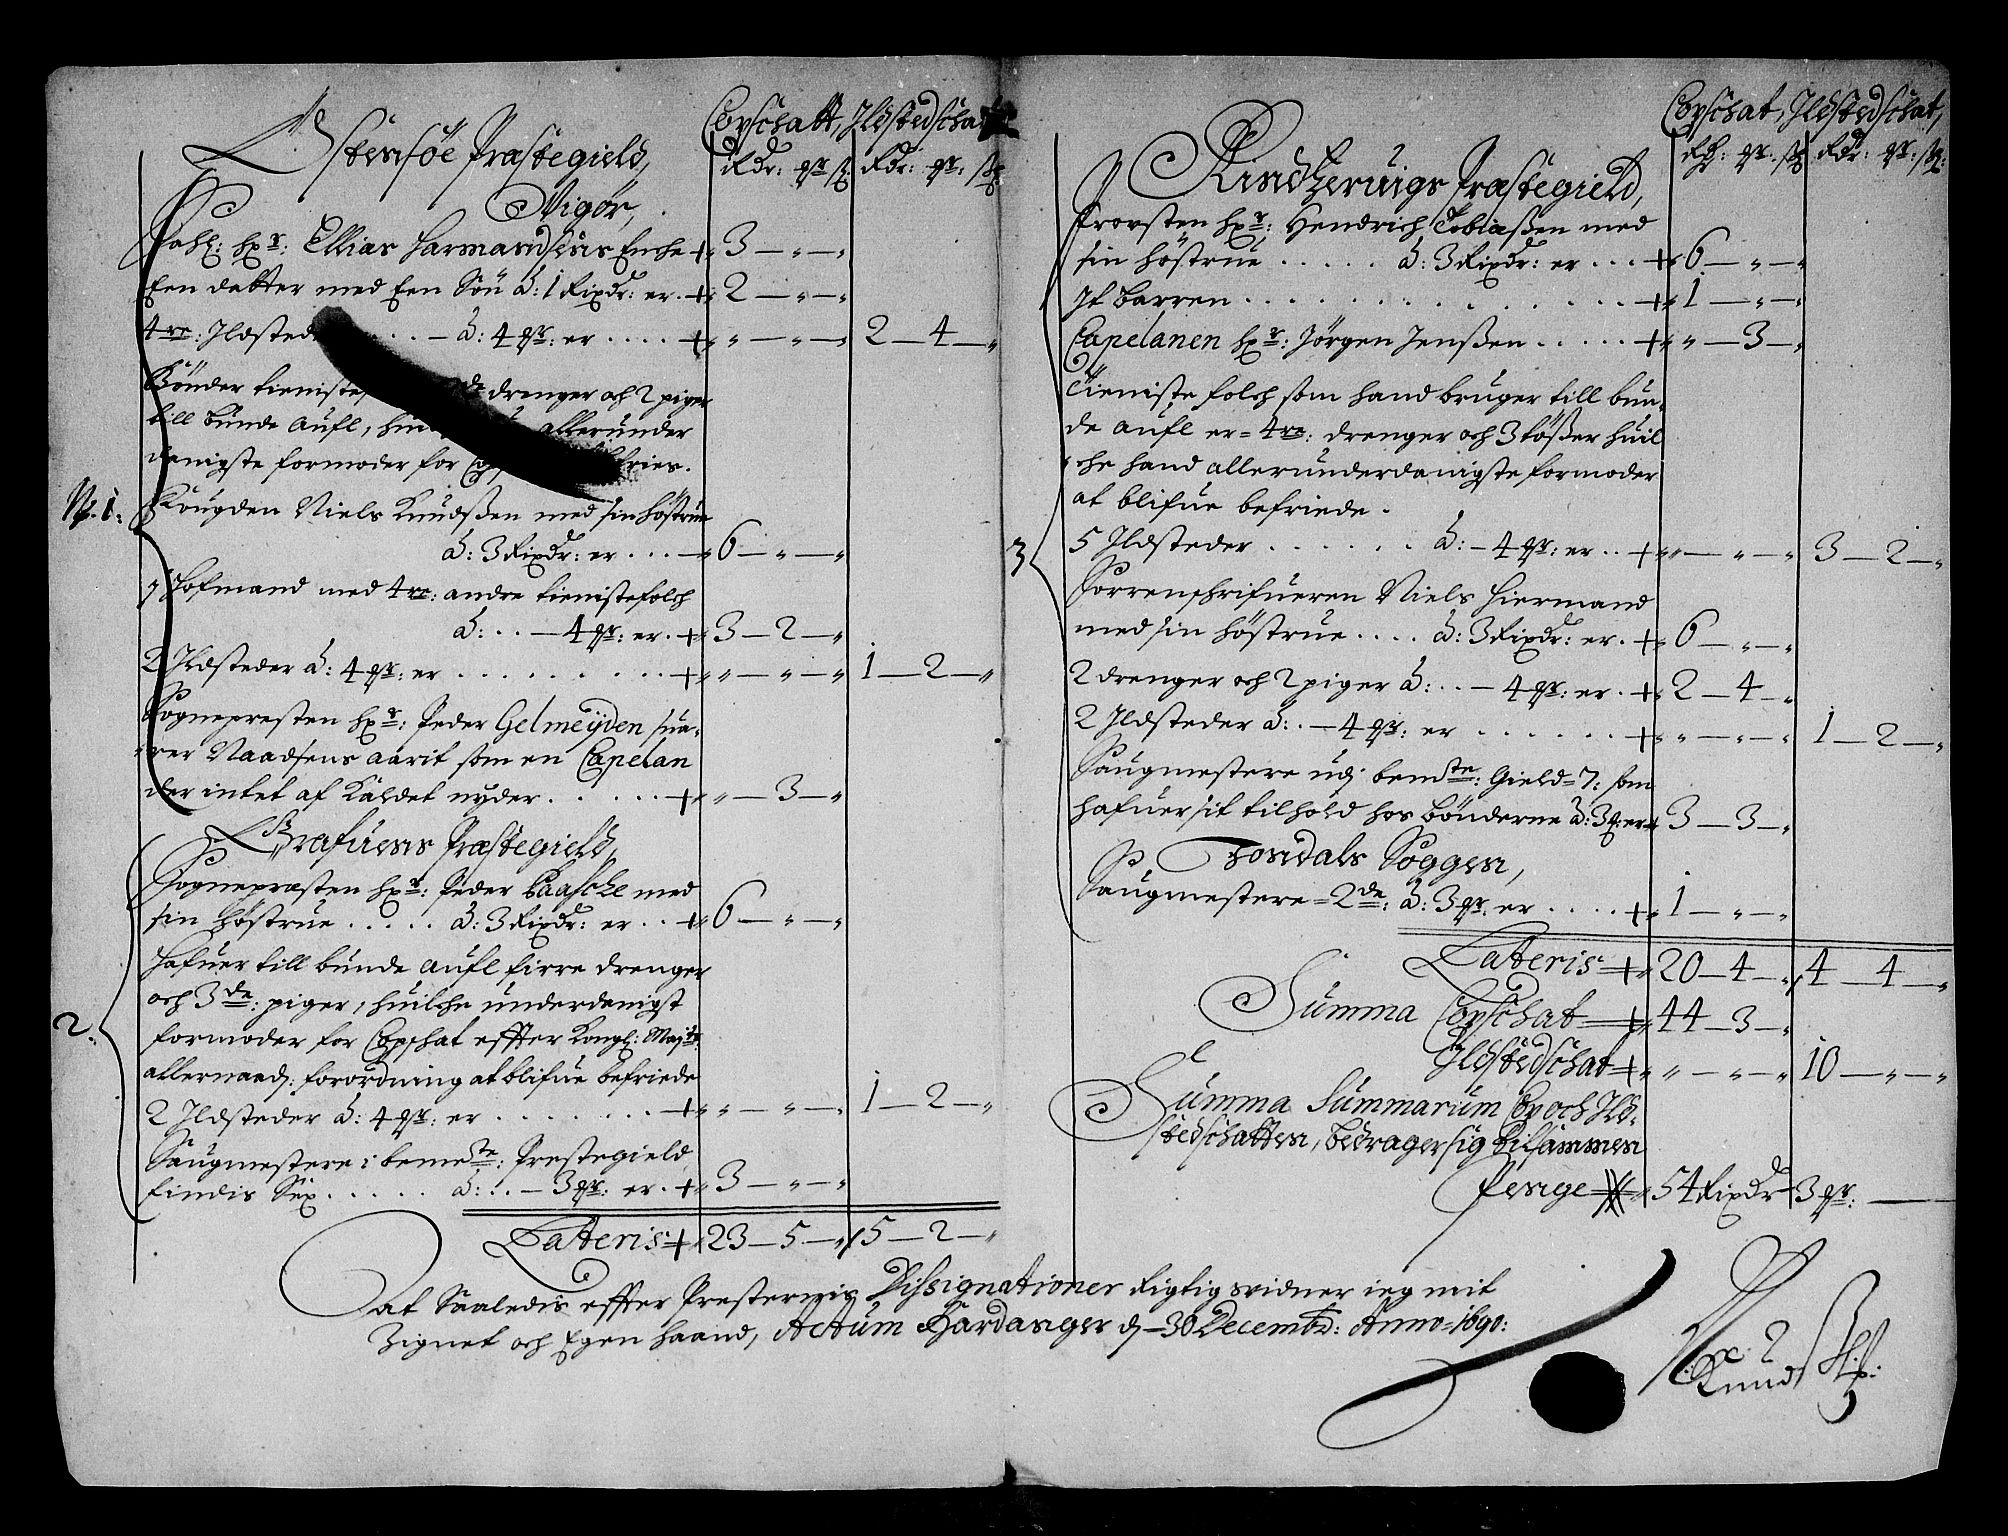 Copschatt, Ildstedschatt
Rdr: ort: sk: Rdr: ort: sk:
Østensöe Præstegield,
Vigör,
Sahl: hr: Ellias Harmandsens Encke + 3 — „ — „
Een datter med Een Sön à: 1 Rixdr: er + 2 — „ — „
4re: Ildsteder . . . — à: 4 ort: er . . . . + „ — „ — „ 2 — 4 — „
Bönder tieniste drenger och 2 piger
till bunde aufl, allerunder
danigste formoder for fries.
No. 1:
Fougden Niels Knudsßen med sin höstrue
à: 3 Rixdr: er . . . 6 — „ — „
1 Hofmand med 4re: andre tienistefolch
à: . . — 4 ort: er . + 3 — 2 — „
2 Ildsteder à: 4 ort: er . . . . . . . . + „ — „ — „ 1 — 2 — „
Sognepresten hr: Peder Gelmeyden sua-
rer Naadsens aarit som en Capelan
der intet af Kaldet nyder . . . . . + „ — 3 — „
Grafuens Præstegield,
Sognepræsten hr: Peder Paasche med
sin höstrue . . . . . à: 3 Rixdr: er . . + 6 — „ — „
Hafuer till bunde aufl firre drenger
och 3de: piger, huilche underdanigst
formoder for Copschat effter Kongl: Majts:
2.
allernaad: forordning at blifue befriede
2 Ildsteder à: 4 ort: er . . . . . . . + „ — „ — „ 1 — 2 — „
Saugmestere i bemelte: Prestegield
findis Sex . . . . . à: . . — 3 ort: er . + 3 — „ — „
Lateris + 23 — 5 — „ 5 — 2 — „
Copschat, Ildstedschat,
Rdr: ort: sk: Rdr: ort: sk:
Kindzeruigs Præstegield,
Provsten hr: Hendrich Tobiæßen med
sin höstrue . . . . . à: 3 Rixdr: er . . . + 6 — „ — „
It barren . . . . . . . . . . . . . + 1 — „ — „
Capelanen hr: Jörgen Jenßen . . . . . + „ — 3 — „
Tieniste folch som hand bruger till bun-
de aufl er = 4re: drenger och 3 tößer huil
che hand allerunderdanigste formoder
at blifue befriede.
3
5 Ildsteder . . . . . . à: — 4 ort: er . . + „ — „ — „ 3 — 2 — „
Sorrenschrifueren Niels Hiermand
med sin höstrue . . . . à: 3 Rixdr: er . + 6 — „ — „
2 drenger och 2 piger à: . . — 4 ort: er . + 2 — 4 — „
2 Ildsteder à: . — 4 ort: er . . . . . . + „ — „ — „ 1 — 2 — „
Saugmestere udj bemte: Gield = 7: som
hafuer sit tilhold hos bönderne à: 3 ort: er + 3 — 3 — „
Tondals Soggen,
Saugmestere = 2de: à: 3 ort: er . . . . + 1 — „ — „
Lateris + 20 — 4 — „ 4 — 4 — „
Summa Copschat + 44 — 3 — „
Ildstedschat + „ — „ — „ 10 — „ — „
Summa Summarum Cop och Ild-
stedschatten, bedrager sig tilsammen
Penge 54 Rixdr 3 ort: —
At Saaledis effter Presternis Dissignationer Rigtig vidner ieg mit
Zignet och Egen haand, Actum Hardanger d — 30 Decembr: Anno = 1690:
Knud